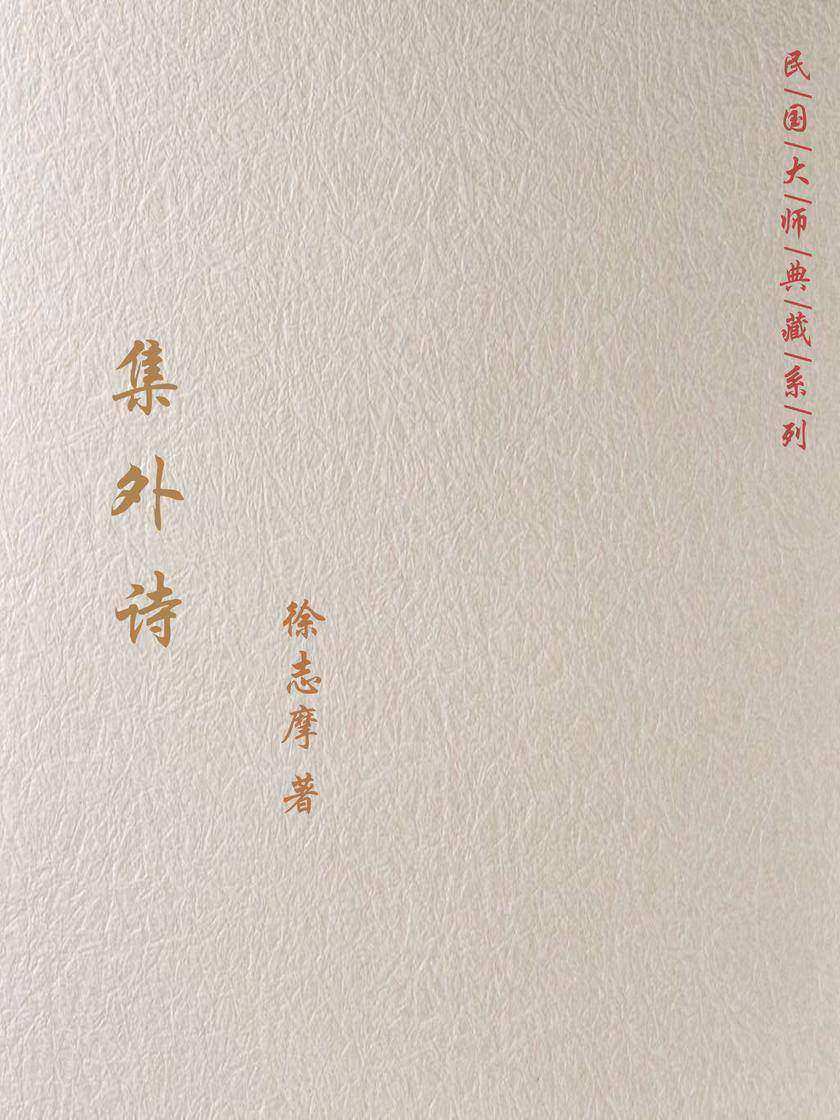 民/国/大/师/典/藏/系/列
集外诗
徐志摩 著